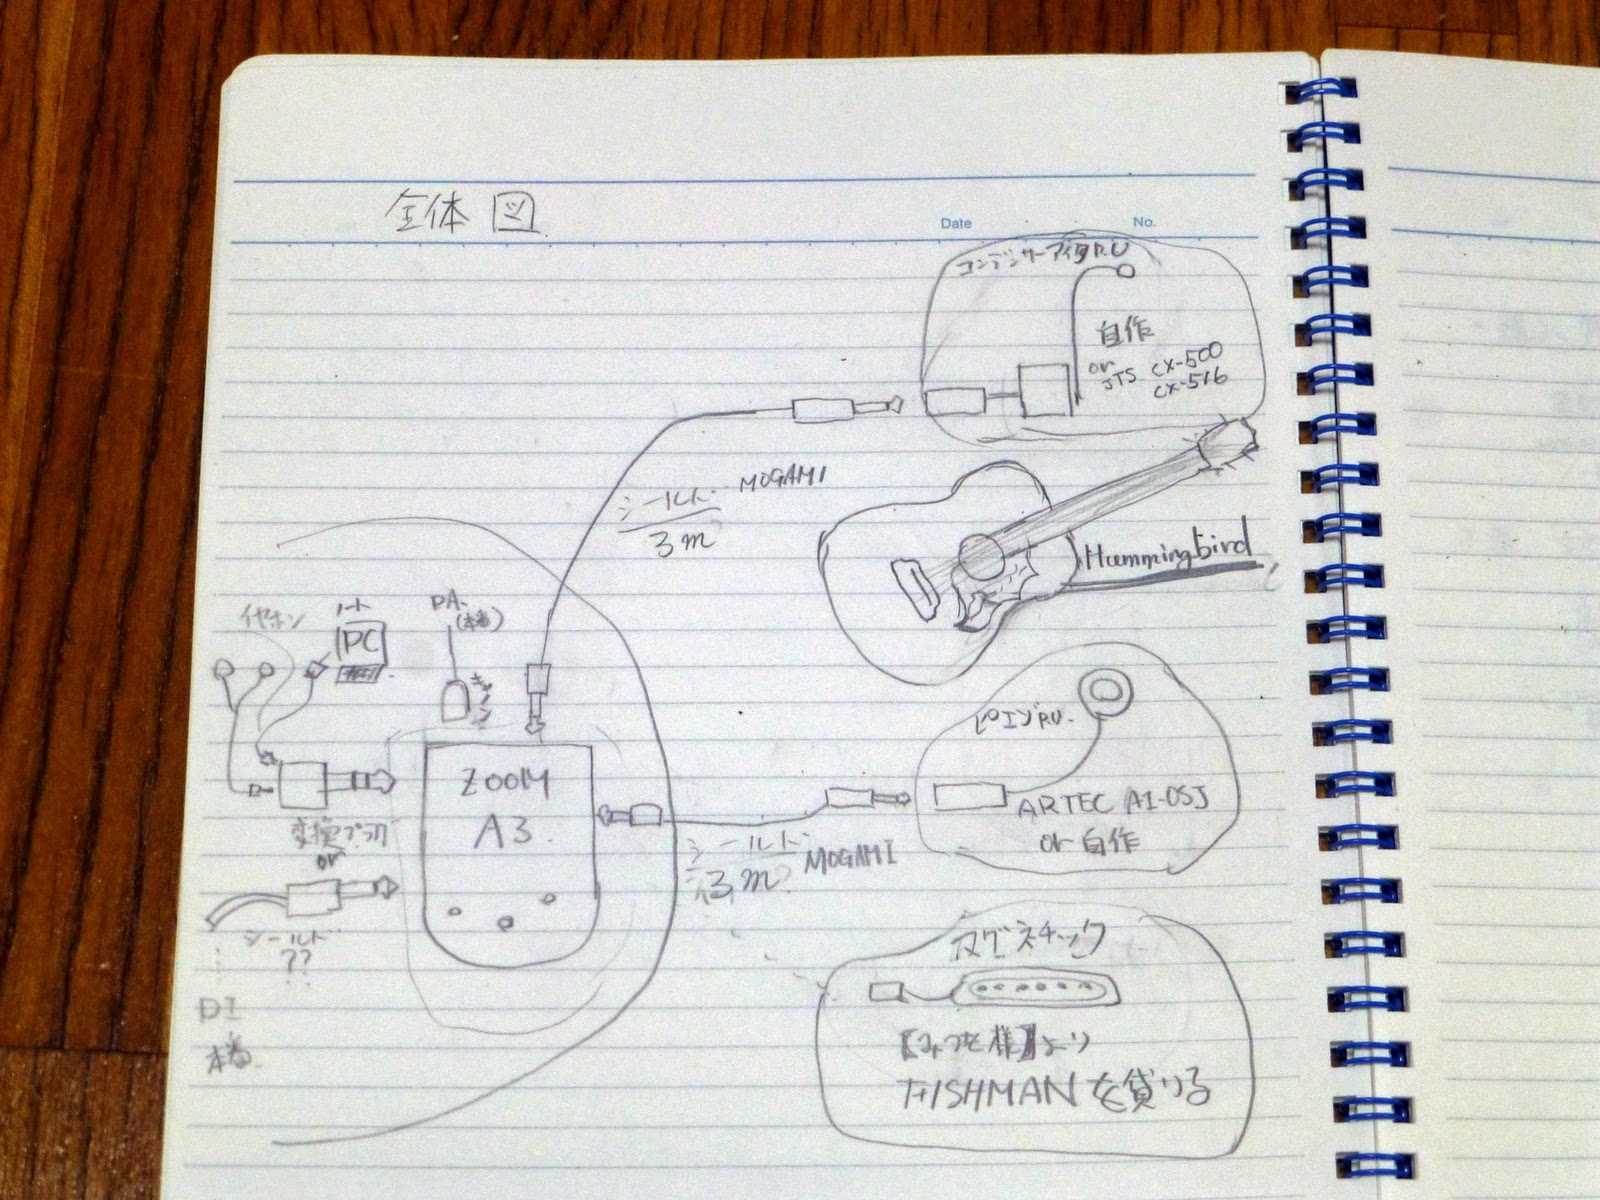 全体図
Date
No.
コンデンサーマイクP.U
自作
or
JTS CX-500
CX-516
シールド MOGAMI
3m
Hummingbird
イヤホン
ノート
PC
P.A.
(本番)
キャノン
ピエゾP.U.
ZOOM
A3
変換プラグ
or
シールド
??
シールド MOGAMI
3m?
ARTEC A1-OSJ
or 自作
DI
本番
マグネチック
様】より
FISHMANを貸りる